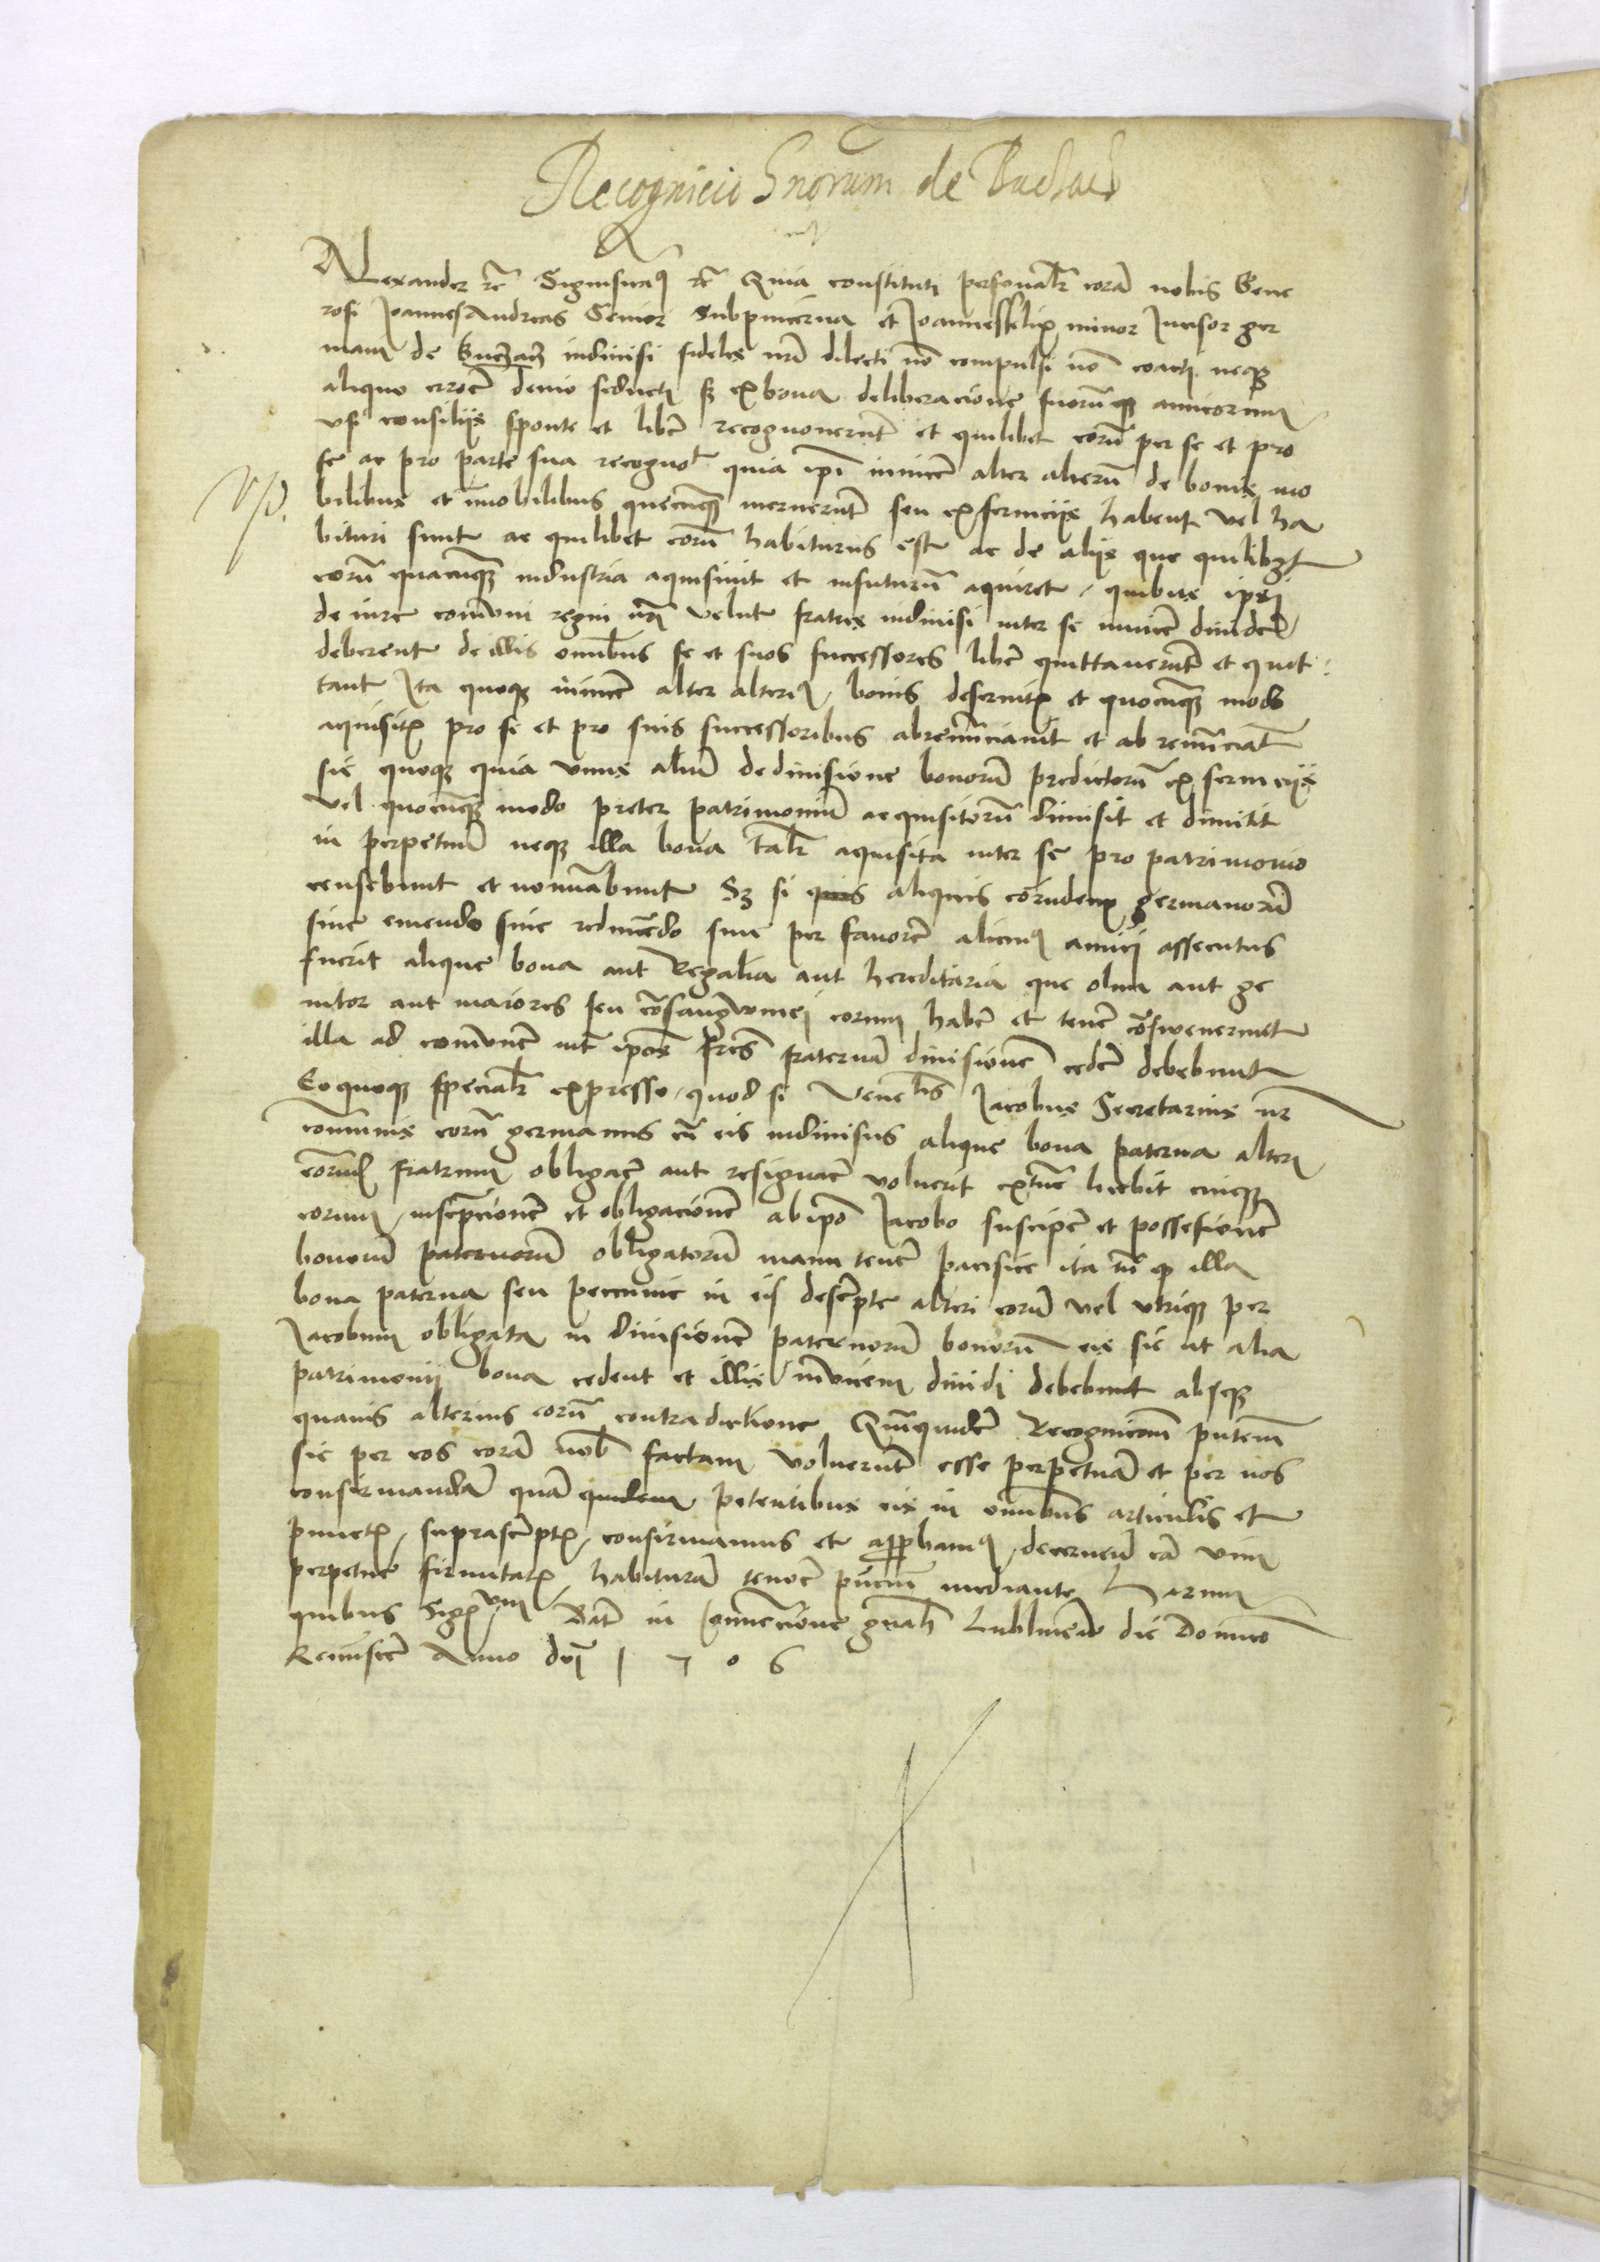 Recognicio Gnorum de Buczacz
Alexander etc Significamus etc Quia constituti personaliter coram nobis Gene
rosi Joannes Andreas Senior Subpincerna et Joannesfelix minor Incisor ger
mani de Buczacz indiuisi fideles nri dilecti no compulsi no coacti neqz
aliquo errore deuio seducti sz ex bona deliberacione suorumqz amicorum
vsi consilijs sponte et libere recognouerunt et quilibet eorum per se et pro
se ac pro parte sua recognouit quia ipi inuicem alter alterum de bonis mo
bilibus et immobilibus quecumqz meruerunt seu ex seruicijs habent vel ha
bituri sunt ac quilibet eorum habiturus est ac de alijs que quilibet
eorum quacumqz industria aquisiuit et infuturum aquiret quibus ipsi
de iure communi regni nri velut fratres indiuisi inter se inuicem diuidere
deberent de illis omnibus se et suos successores libere quittauerunt et quit
tant Ita quoqz inuicem alter alteri bonis deseruitis et quocumqz modo
aquisitis pro se et pro suis successoribus abrenunciauit et ab renunciat
sic quoqz quia vnus alium dediuisione bonorum predictorum ex seruicijs
vel quocumqz modo preter patrimonium acquisitorum dimisit et dimitit
in perpetuum neqz illa bona taliter aquisita inter se pro patrimonio
censebunt et nominabunt Sz si quis aliquis eorundem germanorum
siue emendo siue redimendo siue per fauorem alicuius amici assecutus
fuerit alique bona aut Regalia aut hereditaria que olim aut ge
nitor aut maiores seu consangwinei eorum habere et tenere consweuerunt
illa ad communem inter ipos fres fraternam diuisionem cedere debebunt
Eo quoqz specialiter expresso quod si Venelis Jacobus Secretarius nr
communis eorum germanus cum eis indiuisus alique bona paterna alteri
eorundem fratrum obligare aut resignare voluerit extunc licebit cuiqz
eorum inscripcionem et obligacionem ab ipo Jacobo suscipere et possessionem
bonorum paternorum obligatorum manu tenere pacifice ita tamen qz illa
bona paterna seu peccunie in eis descripte alteri eorum vel vtriqz per
Jacobum obligata in diuisionem paternorum bonorum eis sic ut alia
patrimonij bona cedent et illis inuicem diuidi debebunt absqz
quauis alterius eorum contradictione Quamquidem Recognicionem pntem
sic per eos coram nobis factam voluerunt esse perpetuam et per nos
confirmandam quam quidem petentibus eis in omnibus articulis et
punctis suprascriptis confirmamus et approbamus decernentes eam vim
perpetue firmitatis habituram tenore pncium mediante Harum
quibus Sigillum Dat in Conuencione gnali Lublinensi die Dominico
Reminiscere Anno dni 1506